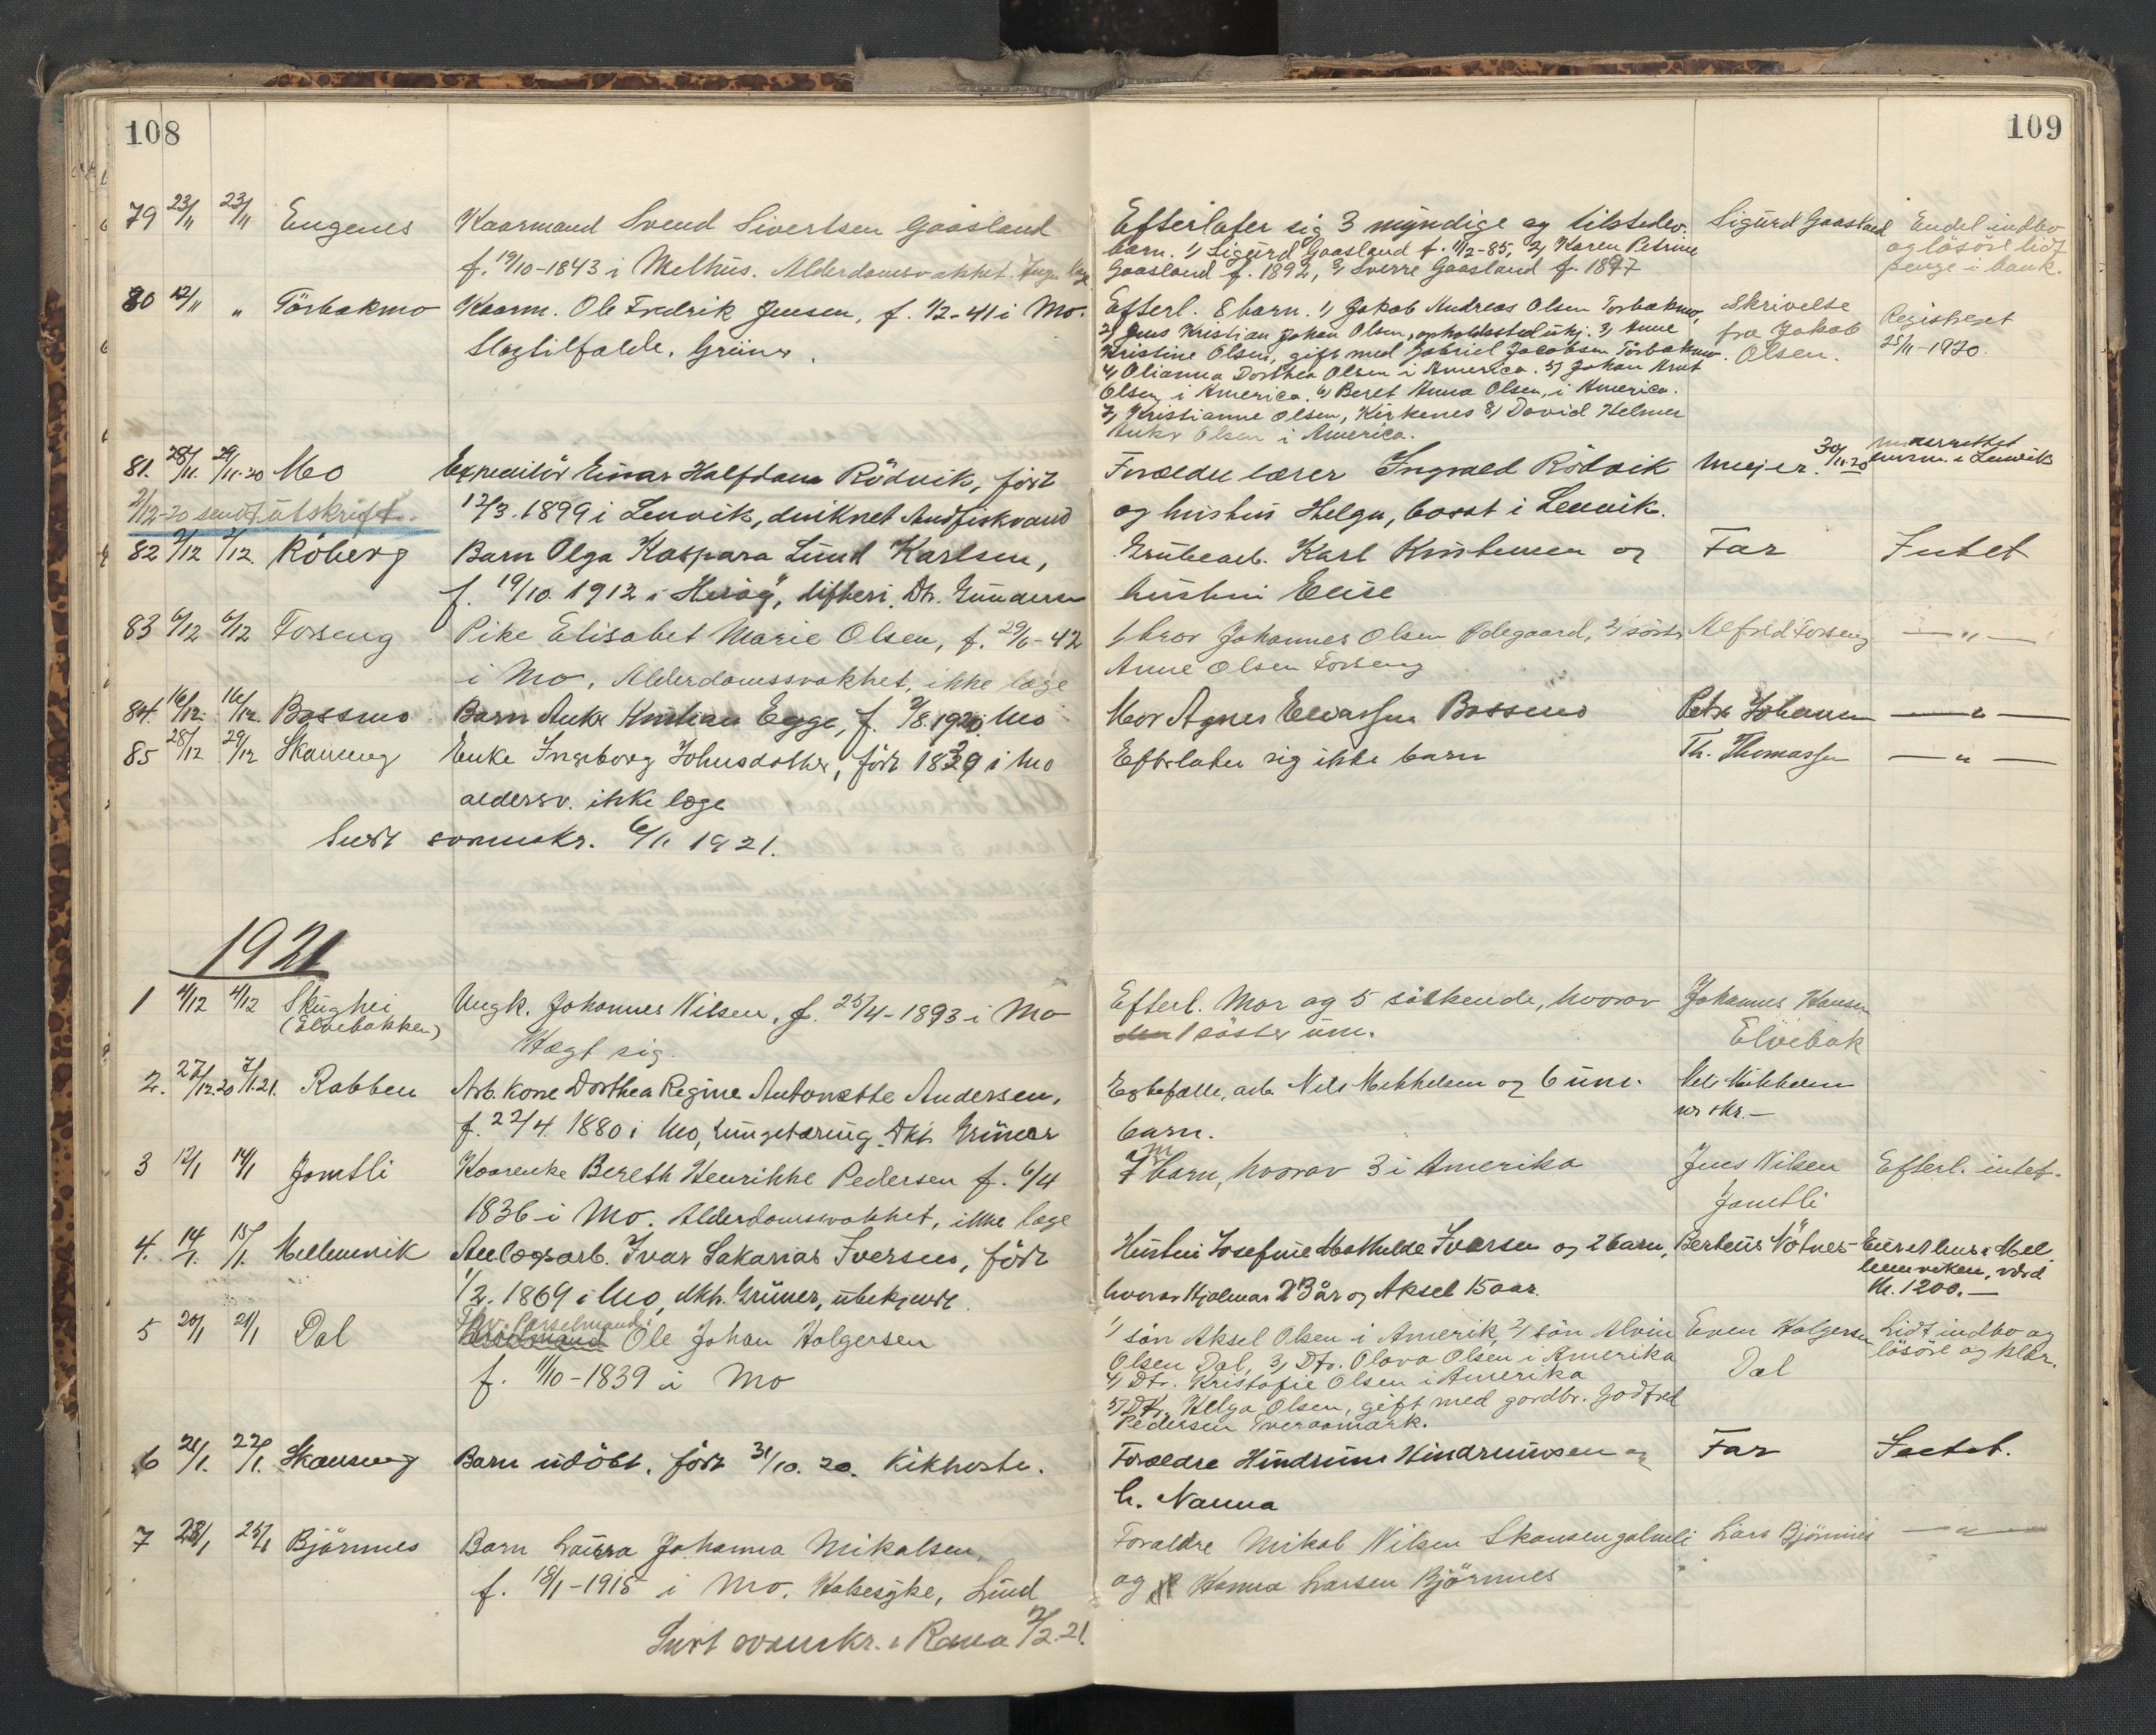 108
79 23/11 23/11 Eugenes Kaarmand Svend Sivertsen Gaasland
f. 19/10-1843 i Melhus. Alderdomssvakhet. Ingen læge
80 12/11 " Törbakmo Kaarm. Ole Fredrik Jensen, f. 1/2-41 i Mo.
Slagtilfælde. Grüner.
81. 28/11. 29/11.20 Mo Expeditör Einar Halfdan Rödvik, födt
2/12-20 sendt utskrift. 12/3.1899 i Lenvik, druknet Andfiskvand
82 2/12 2/12. Röberg Barn Olga Kaspara Lund Karlsen,
f. 19/10.1912 i Heröy, difteri. Dr. Gundersen
83 6/12 6/12 Forseng Pike Elisabet Marie Olsen, f. 29/6-42
i Mo, Alderdomssvakhet, ikke læge
84. 16/12. 16/12. Bossmo Barn Anker Kristian Egge, f. 9/8.1920. Mo
85 28/12 29/12 Skanseng Enke Ingeborg Johnsdatter, födt 1839 i Mo
aldersv. ikke læge
Sendt sorenskr. 6/1. 1921.
1921
1 4/12 4/12 Skughei Ungk. Johannes Nilsen, f. 25/4-1893 i Mo
(Elvebakken) Hægt sig.
2. 27/12.20 7/1.21. Rabben Arb. kone Dorthea Regine Antonette Andersen,
f. 22/4.1880 i Mo, Lungetæring. Dkt. Grüner
3 12/1 14/1 Jamtli Kaarenke Bereth Henrikke Pedersen f. 6/4
1836 i Mo. Alderdomssvakhet, ikke læge
4. 14/1. 15/1. Mellemvik Anlægsarb. Ivar Sakarias Iversen, födt
1/2.1869 i Mo, dkt. Grüner, ubekjendt.
Fhv. Parselmand:
5 20/1 21/1 Dal Ole Johan Holgersen
f. 11/10-1839 i Mo
6 21/1. 22/1. Skanseng Barn udöbt, födt 31/10.20. Kikhoste.
7 23/1 25/1 Björnnes Barn Laura Johanna Mikalsen,
f. 18/1-1915 i Mo. Halsesyke, Lund
Sendt sorenskr. i Rana 7/2.21.
109
Efterlater sig 3 myndige og tilstedev. Sigurd Gaasland Endel indbo
barn. 1) Sigurd Gaasland f. 11/2-85, 2) Karen Petrine og lösöre lidt
Gaasland f. 1892, 3) Sverre Gaasland f. 1897 penge i bank.
Efterl. 8 barn. 1) Jakob Andreas Olsen Torbakmo, Skrivelse Registreret
2) Jens Kristian Johan Olsen, opholdssted ukj. 3) Anne fra Jakob 25/11-1920.
Kristine Olsen, gift med Gabriel Jacobsen Törbakmo. Olsen.
4) Olianna Dorthea Olsen i America. 5) Johan Arnt
Olsen, i America. 6) Beret Anna Olsen, i America.
7) Kristianne Olsen, Kirkenes 8) David Helmer
Anker Olsen i America.
Forældre lærer Ingvald Rödvik Meyer. 30/11-20 underrettet lensm. i Lenvik
og hustru Helga, bosat i Lenvik.
Grubearb. Karl Kristensen og Far Intet
hustru Elise
1) bror Johannes Olsen Ødegaard, 2) söster Alfred Forseng — " —
Anne Olsen Forseng
Mor Agnes Bossmo Peter Johansen — " —
Efterlater sig ikke barn Th. Thomassen — " —
Efterl. Mor og 5 söskende, hvorav Johannes Hansen
1 söster um. Elvebak
Egtefælle, arb. Nils Mikkelsen og 6 um. Nils Mikkelsen
barn.
7 m barn, hvorav 3 i Amerika Jens Nilsen Efterl. intet.
Jamtli
Hustru Josefine Mathilde Iversen og 2 barn, Berteus Nötnes Eiet et hus i Mel
hvorav Hjalmar 23 år og Aksel 15 aar. lemviken, værd
kr. 1200.—
1) sön Aksel Olsen i Amerik, 2) sön Alvin Even Holgersen Lidt indbo og
Olsen Dal, 3) Dtr. Olava Olsen i Amerika Dal lösöre og klær.
4) Dtr. Kristofie Olsen i Amerika
5) Dtr. Helga Olsen, gift med gardbr. Godfred
Pedersen Tveraamark.
Forældre Hindrum Hindrumsen og Far Intet.
h. Nanna
Foraldre Mikal Nilsen Skansengalmli Lars Björnnes — " —
og Hanna Larsen Björnnes